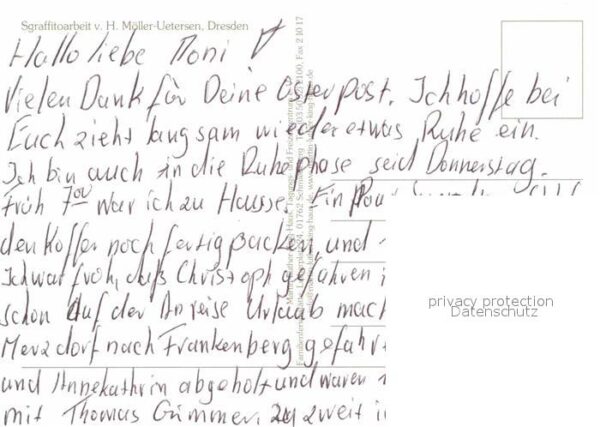 Sgraffitoarbeit v. H. Möller-Uetersen, Dresden
Hallo liebe Moni!
Vielen Dank für Deine Osterpost. Ich hoffe bei
Euch zieht langsam wieder etwas Ruhe ein.
Ich bin auch in die Ruhephase seid Donnerstag.
Früh 7 00 war ich zu Hausse. Ein
den Koffer noch fertig packen, und
Ich war froh, daß Christoph gefahren
schon auf der Anreise Urlaub mach
Merzdorf nach Frankenberg gefahr
und Annekathrin abgeholt und waren
mit Thomas Gümmer. zu zweit i
privacy protection
Datenschutz